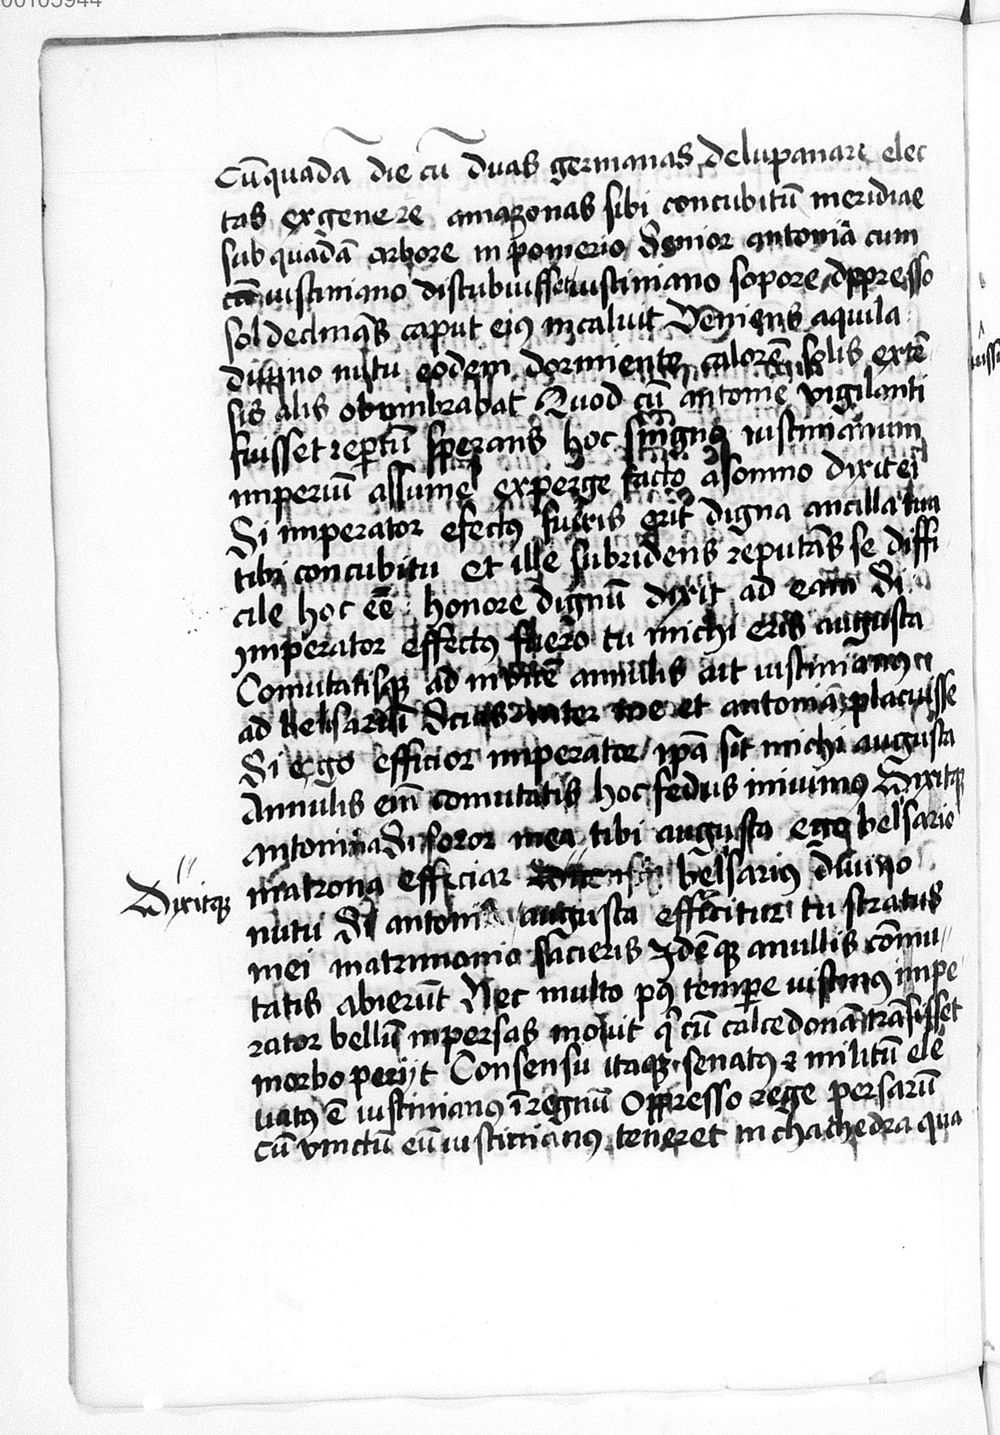 00105944
Cū quadā die cū duas germanas de lupanare elec
tas ex genere amazonas sibi concubitū meridiae
sub quadā arbore in pomerio Senior antoniā cum
iustiniano discubuisset iustiniano sopore oppresso
sol declināns caput ejꝰ incaluit Veniens aquila
divino nutu eodem dormiente calorē solis extē
sis alis obumbrabat Quod cū antonie vigilanti
fuisset repertū sperans hoc signo iustinianum
imperiū assumē experge facto a somno dixit ei
Si imperator efectꝰ fueris erit digna ancilla tua
tibi concubitu et ille subridens reputās se diffi
cile hoc eē honore dignū dixit ad eam Si
imperator effectꝰ fuero tu michi eris augusta
Comutatisqꝫ ad invicē annulis ait iustinianꝰ
ad belisariū Scias inter me et antoniā placuisse
Si ego efficior imperator ipā sit michi augusta
Annulis em̄ comutatis hoc fedus inivimꝰ Dixitqꝫ
antonina Si soror mea tibi augusta ego belsario
Dixitqꝫ
matrona efficiar belsariꝰ divino
nutu Si antoniā augusta efficitur tu stratus
mei matrimonio sacieris Idēqꝫ anullis cōmu
tatis abierūt Nec multo pꝰ tempe iustinꝰ impe
rator bellū in persas movit q̄ cū calcedonā trāsisset
morbo periit Consensu itaqꝫ senatꝰ & militū ele
vatꝰ ē iustinianꝰ ī regnū Oppresso rege persarū
cū vinctū eū iustinianꝰ teneret in chathedra qua